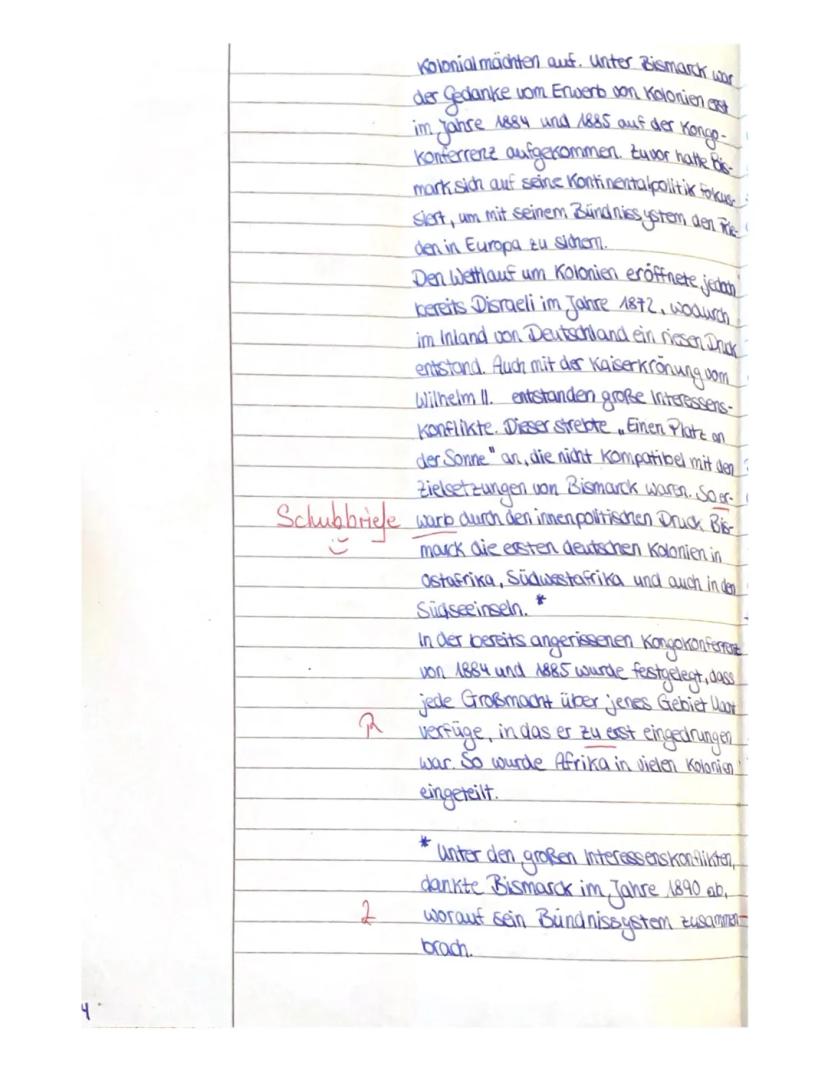 Kolonialmächten auf. Unter Bismarck war
der Gedanke vom Erwerb von Kolonien erst
im Jahre 1884 und 1885 auf der Kongo-
Konferrenz aufgekommen. Zuvor hatte Bis-
mark sich auf seine Kontinentalpolitik fokus-
siert, um mit seinem Bündnissystem den Frie-
den in Europa zu sichern.
Den Wettlauf um Kolonien eröffnete jedoch
bereits Disraeli im Jahre 1872, wodurch
im Inland von Deutschland ein riesen Druck
entstand. Auch mit der Kaiserkrönung vom
Wilhelm II. entstanden große Interessens-
konflikte. Dieser strebte „Einen Platz an
der Sonne" an, die nicht kompatibel mit den
Zielsetzungen von Bismarck waren. So er-
Schubbriefe warb durch den innenpolitischen Druck Bis-
marck die ersten deutschen Kolonien in
Ostafrika, Südwestafrika und auch in den
Südseeinseln. *
In der bereits angerissenen Kongokonferrenz
von 1884 und 1885 wurde festgelegt, dass
jede Großmacht über jenes Gebiet
R verfüge, in das er zu erst eingedrungen
war. So wurde Afrika in vielen Kolonien
eingeteilt.
* Unter den großen Interessenskonflikten,
dankte Bismarck im Jahre 1890 ab,
2 worauf sein Bündnissystem zusammen-
brach.
4